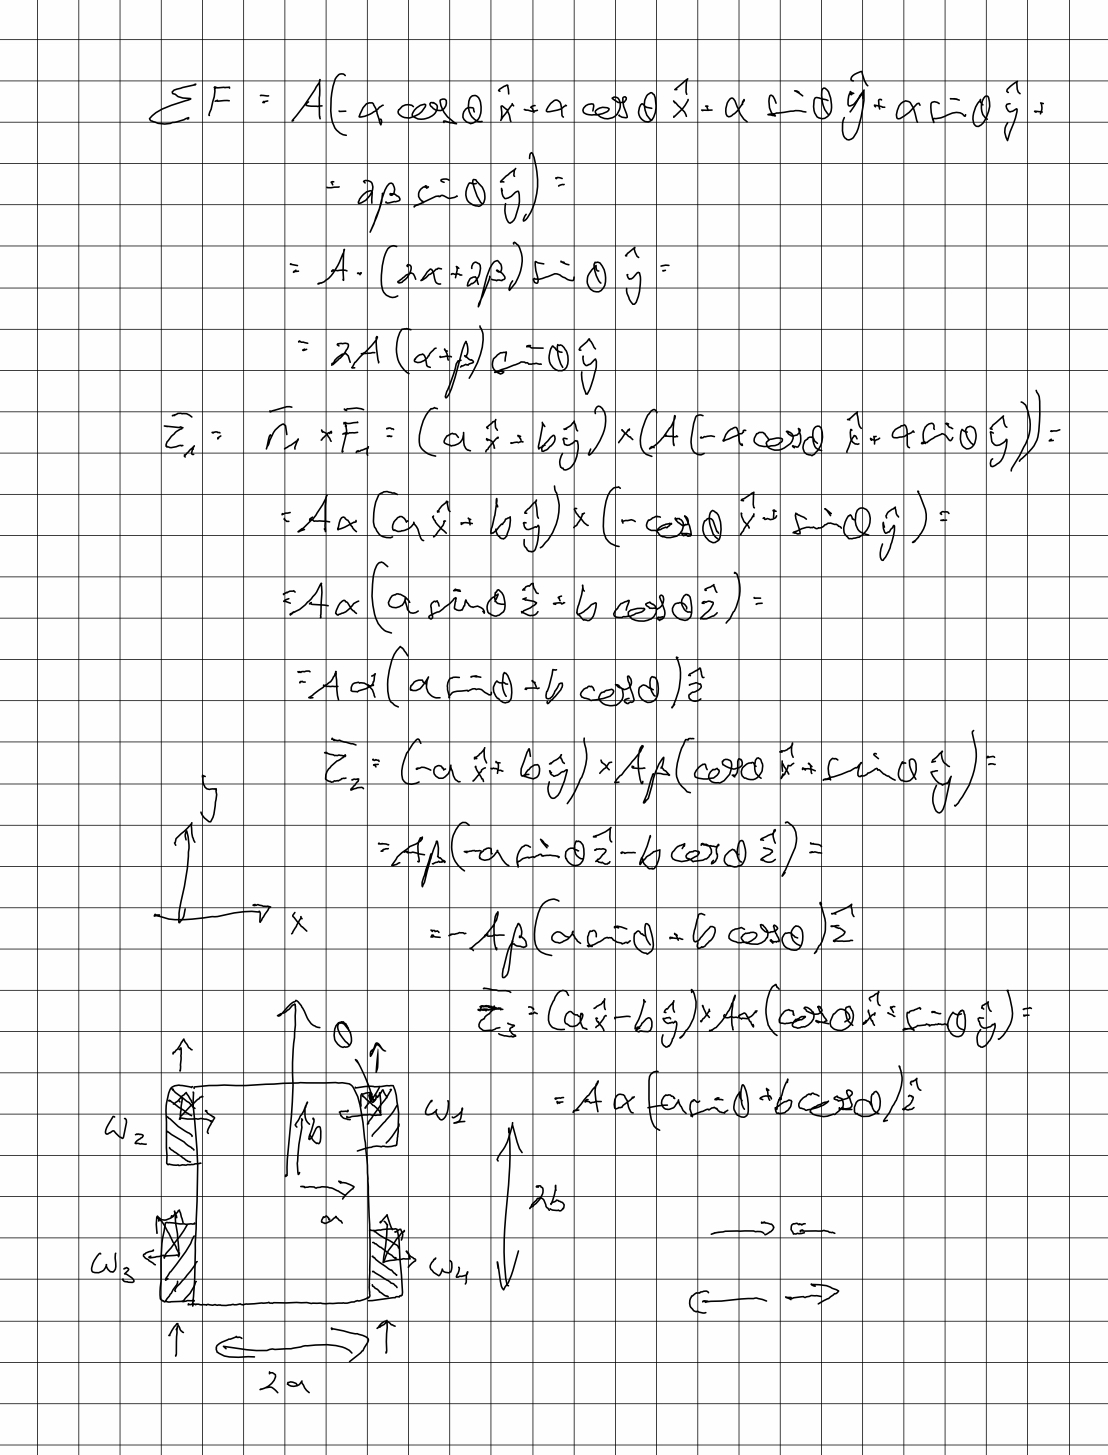 ΣF = A(-α cosθ x̂ + α cosθ x̂ + α sinθ ŷ + α sinθ ŷ +
+ 2β sinθ ŷ) =
= A·(2α+2β) sinθ ŷ =
= 2A(α+β) sinθ ŷ
τ̄₁ = r̄₁ × F̄₁ = (a x̂ + b ŷ) × (A(-α cosθ x̂ + α sinθ ŷ)) =
= Aα(a x̂ + b ŷ) × (-cosθ x̂ + sinθ ŷ) =
= Aα(a sinθ ẑ + b cosθ ẑ) =
= Aα(a sinθ + b cosθ) ẑ
τ̄₂ = (-a x̂ + b ŷ) × Aβ(cosθ x̂ + sinθ ŷ) =
= Aβ(-a sinθ ẑ - b cosθ ẑ) =
= -Aβ(a sinθ + b cosθ) ẑ
τ̄₃ = (a x̂ - b ŷ) × Aα(cosθ x̂ + sinθ ŷ) =
= Aα(a sinθ + b cosθ) ẑ
y
x
θ
ω₂
b
ω₁
a
2b
ω₃
ω₄
2a